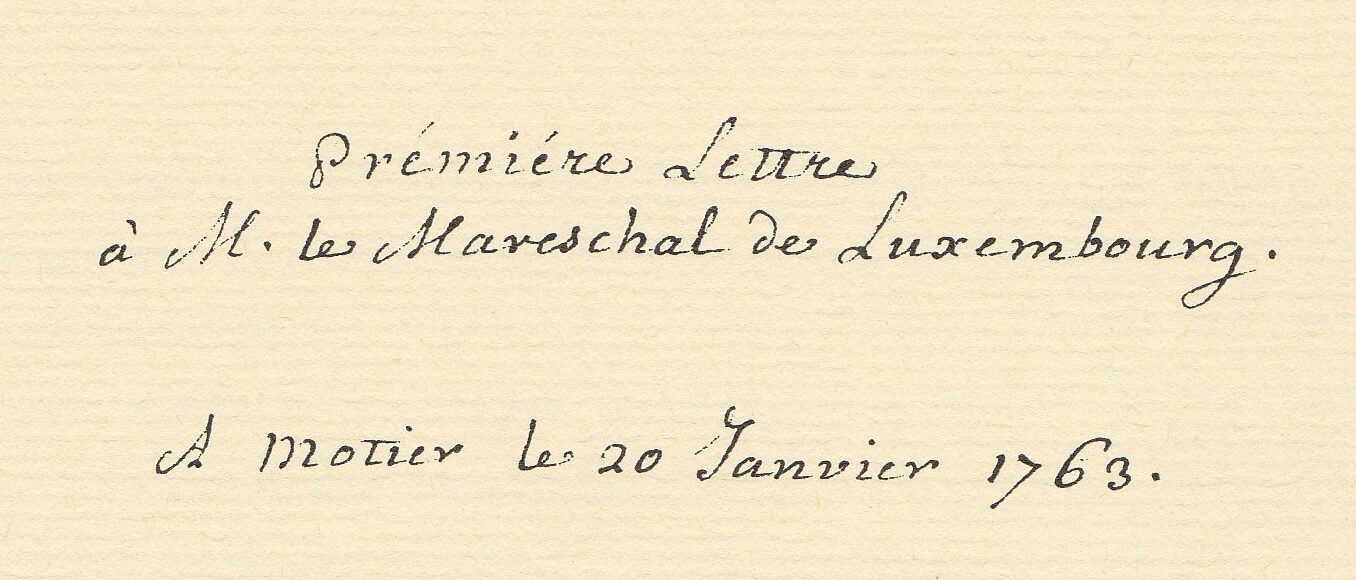 Prémiére Lettre
à M. le Mareschal de Luxembourg.
A Motier le 20 Janvier 1763.